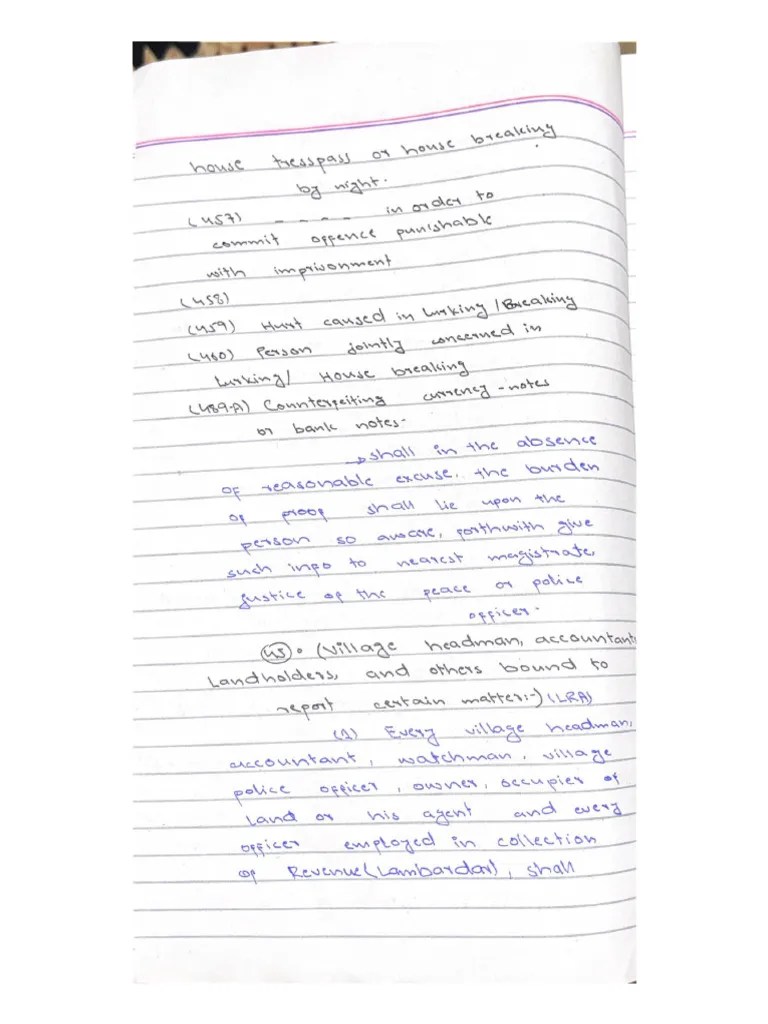 house tresspass or house breaking
by night.
(457) - - - - in order to
commit offence punishable
with imprisonment
(458)
(459) Hurt caused in lurking / Breaking
(460) Person jointly concerned in
lurking / House breaking
(489-A) Counterfeiting currency-notes
or bank notes-
→ shall in the absence
of reasonable excuse, the burden
of proof shall lie upon the
person so aware, forthwith give
such info to nearest magistrate,
justice of the peace or police
officer.
(45). (Village headman, accountant,
Landholders, and others bound to
report certain matter:-) (LRA)
(1) Every village headman,
accountant, watchman, village
police officer, owner, occupier of
land or his agent and every
officer employed in collection
of Revenue (Lambardar), shall